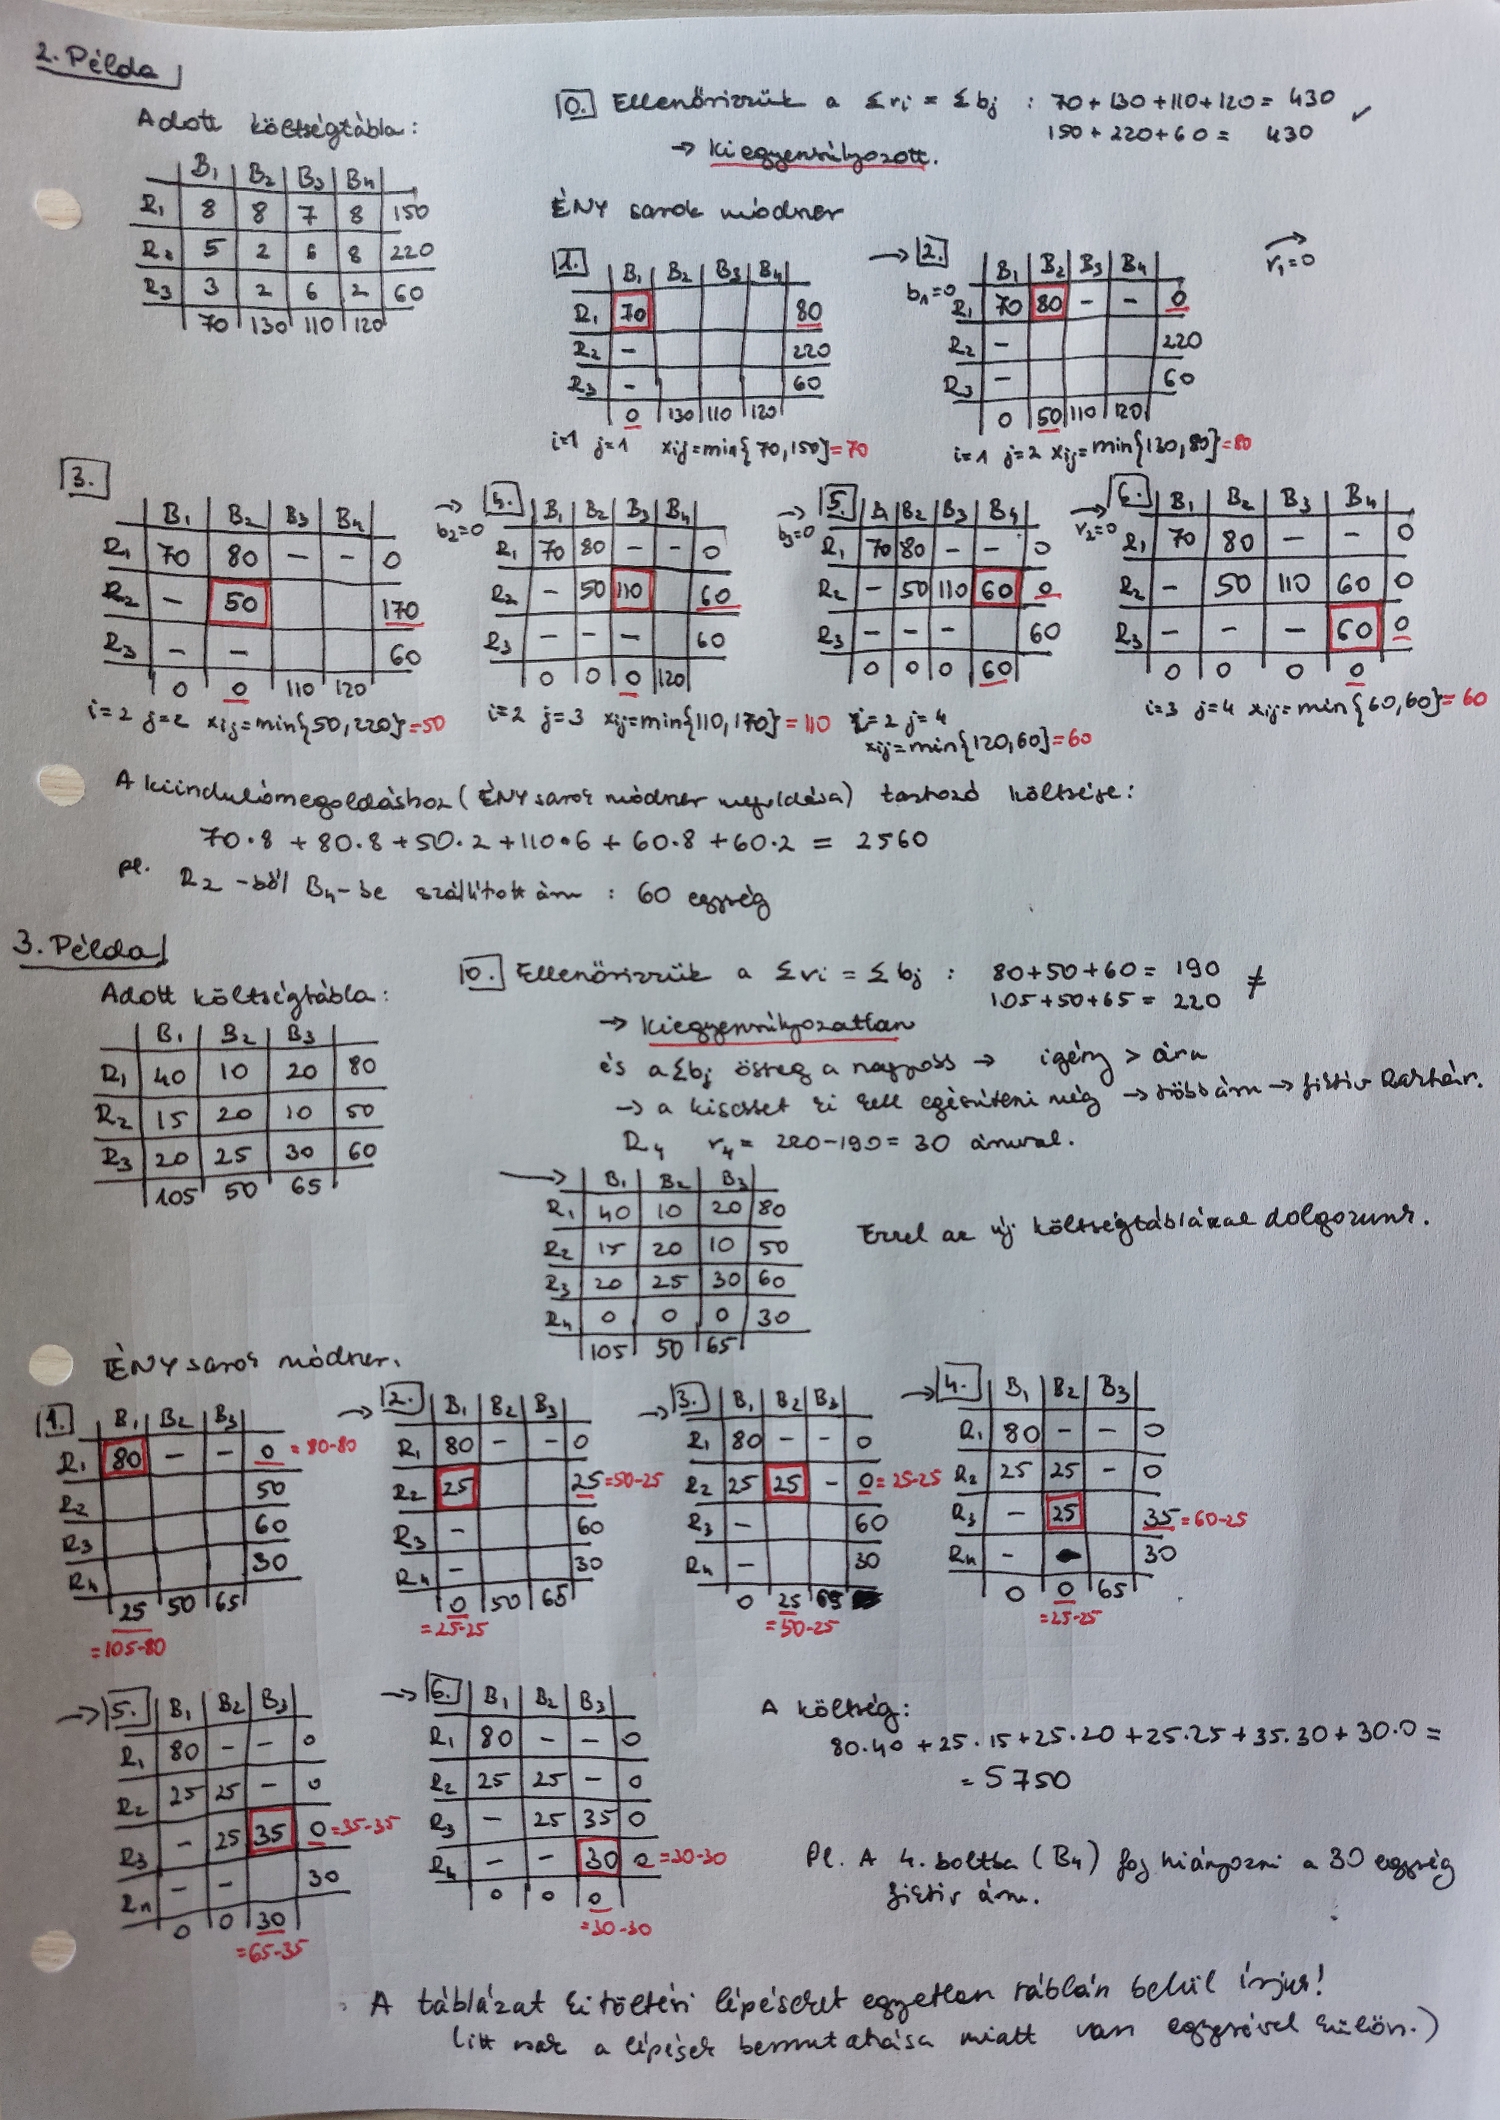 2. Példa
Adott költségtábla:
B1 B2 B3 B4
R1 8 8 7 8 150
R2 5 2 6 8 220
R3 3 2 6 2 60
70 130 110 120
0. Ellenőrizzük a Σri = Σbj : 70+130+110+120 = 430 ✓
150+220+60 = 430
→ kiegyensúlyozott.
ÉNY sarok módszer
1. B1 B2 B3 B4
R1 70 80
R2 - 220
R3 - 60
0 130 110 120
i=1 j=1 xij=min{70,150}=70
→ 2. B1 B2 B3 B4
b1=0
R1 70 80 - - 0
R2 - 220
R3 - 60
0 50 110 120
i=1 j=2 xij=min{130,80}=80
r1=0
3.
B1 B2 B3 B4
R1 70 80 - - 0
R2 - 50 170
R3 - - 60
0 0 110 120
i=2 j=2 xij=min{50,220}=50
→ 4. B1 B2 B3 B4
b2=0
R1 70 80 - - 0
R2 - 50 110 60
R3 - - - 60
0 0 0 120
i=2 j=3 xij=min{110,170}=110
→ 5. B1 B2 B3 B4
b3=0
R1 70 80 - - 0
R2 - 50 110 60 0
R3 - - - 60
0 0 0 60
i=2 j=4
xij=min{120,60}=60
→ 6. B1 B2 B3 B4
r2=0
R1 70 80 - - 0
R2 - 50 110 60 0
R3 - - - 60 0
0 0 0 0
i=3 j=4 xij=min{60,60}=60
A kiindulómegoldáshoz (ÉNY sarok módszer megoldása) tartozó költsége:
70·8 + 80·8 + 50·2 + 110·6 + 60·8 + 60·2 = 2560
pl. R2-ből B4-be szállított áru : 60 egység
3. Példa
Adott költségtábla:
B1 B2 B3
R1 40 10 20 80
R2 15 20 10 50
R3 20 25 30 60
105 50 65
0. Ellenőrizzük a Σri = Σbj : 80+50+60 = 190 ≠
105+50+65 = 220
→ kiegyensúlyozatlan
és a Σbj összeg a nagyobb → igény > áru
→ a kisebbet ki kell egészíteni még → több áru → fiktív raktár.
R4 r4 = 220-190 = 30 áruval.
→ B1 B2 B3
R1 40 10 20 80
R2 15 20 10 50
R3 20 25 30 60
R4 0 0 0 30
105 50 65
Ezzel az új költségtáblával dolgozunk.
ÉNY sarok módszer.
1. B1 B2 B3
R1 80 - - 0 =80-80
R2 50
R3 60
R4 30
25 50 65
=105-80
→ 2. B1 B2 B3
R1 80 - - 0
R2 25 25=50-25
R3 - 60
R4 - 30
0 50 65
=25-25
→ 3. B1 B2 B3
R1 80 - - 0
R2 25 25 - 0=25-25
R3 - 60
R4 - 30
0 25 65
=50-25
→ 4. B1 B2 B3
R1 80 - - 0
R2 25 25 - 0
R3 - 25 35=60-25
R4 - - 30
0 0 65
=25-25
→ 5. B1 B2 B3
R1 80 - - 0
R2 25 25 - 0
R3 - 25 35 0=35-35
R4 - - 30
0 0 30
=65-35
→ 6. B1 B2 B3
R1 80 - - 0
R2 25 25 - 0
R3 - 25 35 0
R4 - - 30 0 =30-30
0 0 0
=30-30
A költség:
80·40 + 25·15 + 25·20 + 25·25 + 35·30 + 30·0 =
= 5750
Pl. A 4. boltba (B4) fog hiányozni a 30 egység
fiktív áru.
A táblázat kitöltési lépéseket egyetlen táblán belül írjuk!
(itt csak a lépések bemutatása miatt van egyesével külön.)